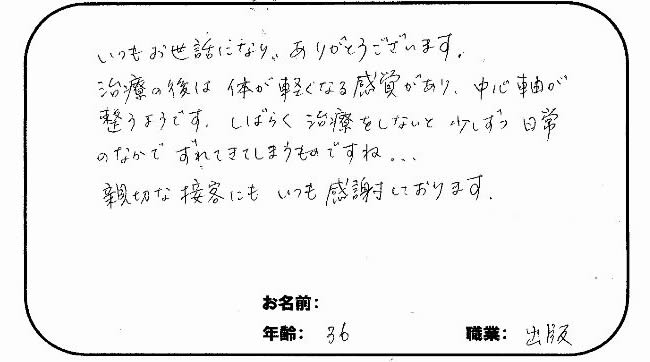 いつもお世話になり、ありがとうございます。
治療の後は 体が軽くなる感覚があり、中心軸が
整うようです。しばらく治療をしないと 少しずつ 日常
のなかで ずれてきてしまうものですね...
親切な接客にも いつも感謝しております。
お名前:
年齢: 36 職業: 出版